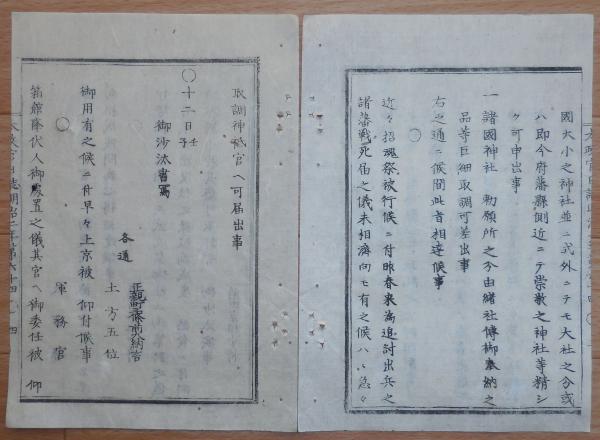 國大小之神社並ニ式外ニテモ大社之分或
ハ即今府藩縣側近ニテ崇敬之神社等精シ
ク可申出事
一諸國神社　勅願所之分由緒社傳御奉納之
品等巨細取調可差出事
右之通ニ候間此旨相達候事
近々招魂祭被行候ニ付昨春来為追討出兵之
諸藩戰死届之儀未相濟向モ有之候ハヽ急々
取調神祇官ヘ可届出事
○十二日壬子
御沙汰書寫
各通
正親町中納言
土方五位
御用有之候ニ付早々上京被　仰付候事
○
軍務官
箱館降伏人御處置之儀其官ヘ御委任被　仰